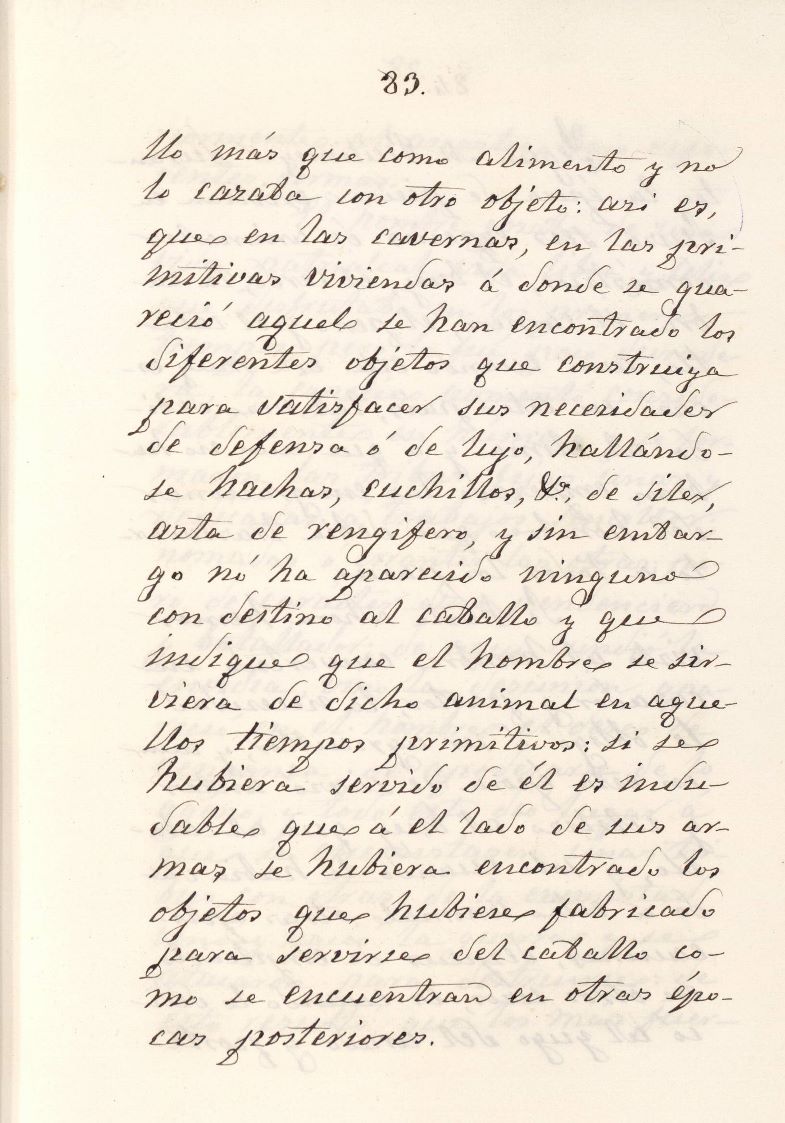 83.
llo más que como alimento y no
lo cazaba con otro objeto: asi es,
que en las cavernas, en las pri-
mitivas viviendas á donde se gua-
reció aquel se han encontrado los
diferentes objetos que construiya
para satisfacer sus necesidades
de defensa ó de lujo, hallándo-
se hachas, cuchillos, &., de silex,
asta de rengifero, y sin embar-
go nó ha aparecido ninguno
con destino al caballo y que
indique que el hombre se sir-
viera de dicho animal en aque-
llos tiempos primitivos: si se
hubiera servido de él es indu-
dable que á el lado de sus ar-
mas se hubiera encontrado los
objetos que hubiese fabricado
para servirse del caballo co-
mo se encuentran en otras épo-
cas posteriores.